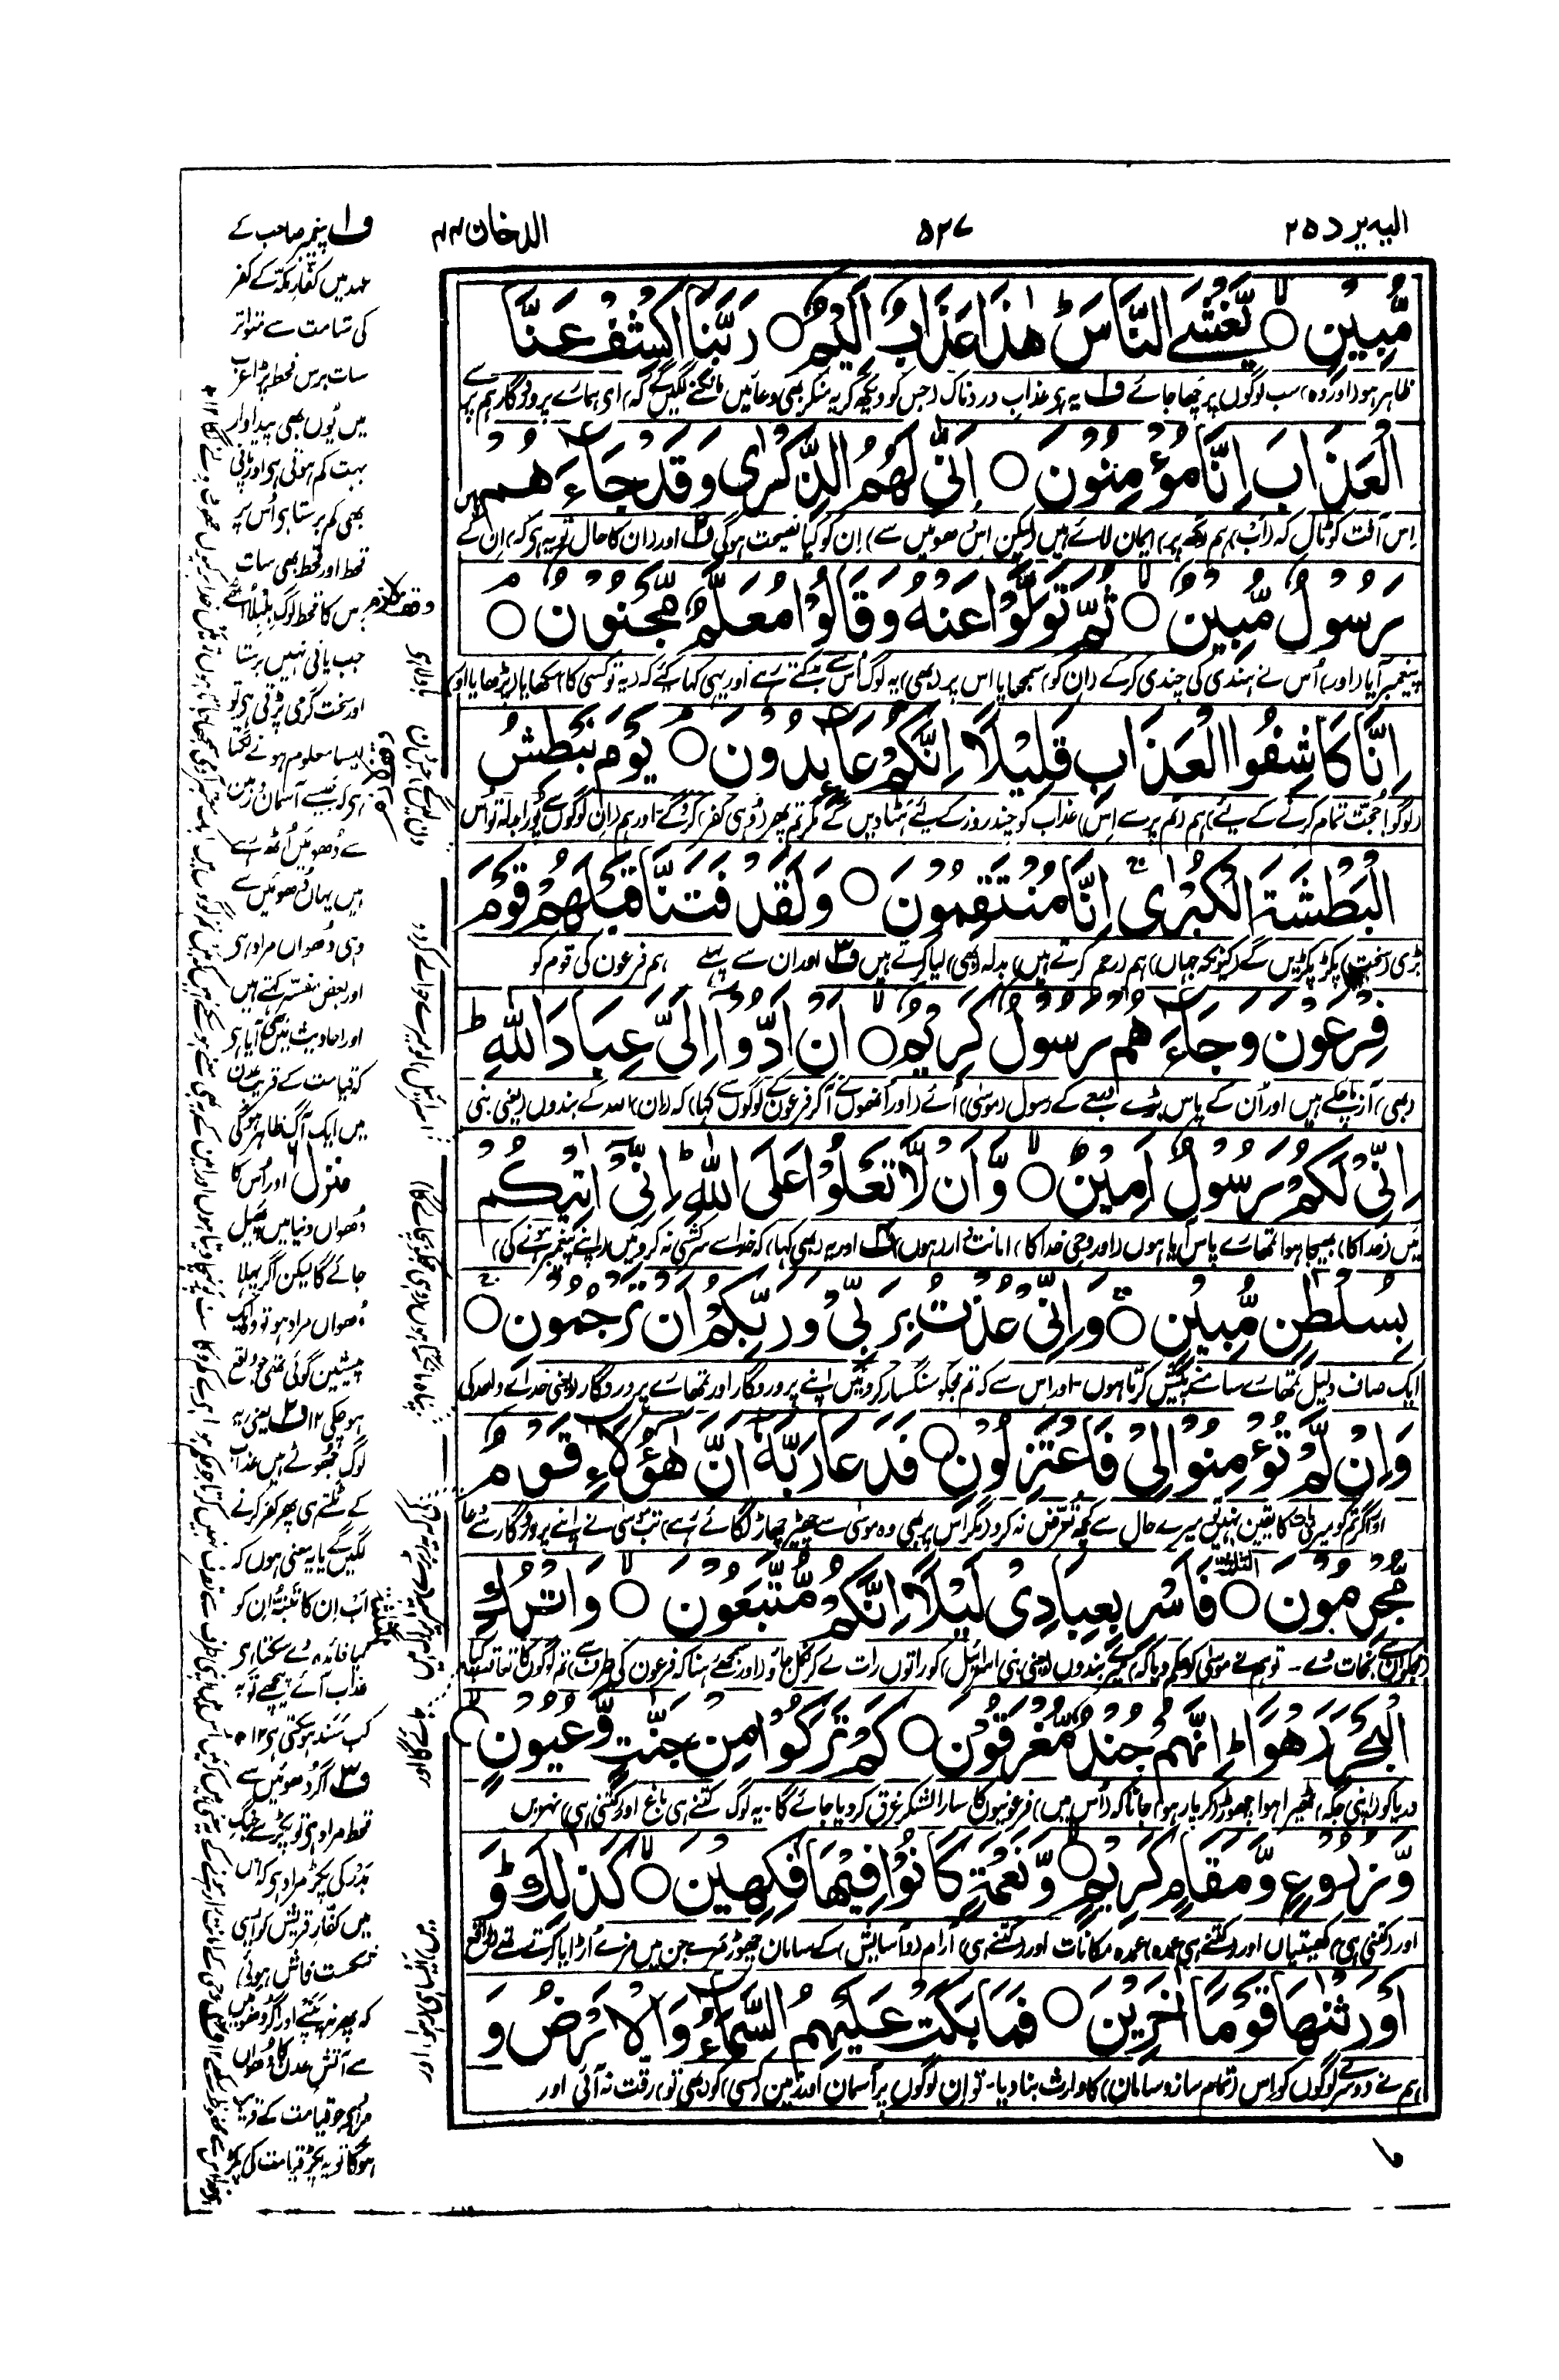 الیہ یرد ۲۵
۵۲۷
الدخان ۴۴
مُّبِیْنٍ ○ یَّغْشَی النَّاسَ ؕ هٰذَا عَذَابٌ اَلِیْمٌ ○ رَبَّنَا اکْشِفْ عَنَّا
ظاہر ہو (اور وہ) سب لوگوں پر چھا جائے ف۱ یہ ہی عذاب درد ناک (جس کو دیکھ کر یہ منکر بھی دعائیں مانگنے لگیں گے کہ) ای ہمارے پروردگار ہم پر سے
الْعَذَابَ اِنَّا مُؤْمِنُوْنَ ○ اَنّٰی لَهُمُ الذِّکْرٰی وَقَدْ جَآءَهُمْ
اِس آفت کو ٹال کہ (اب) ہم (تجھ پر) ایمان لائے ہیں (لیکن اس دھوئیں سے) اِن کو کیا نصیحت ہوگی ف۲ اور (ان کا حال تو یہ ہی کہ) اِن کے پاس
رَسُوْلٌ مُّبِیْنٌ ○ ثُمَّ تَوَلَّوْا عَنْهُ وَقَالُوْا مُعَلَّمٌ مَّجْنُوْنٌ ○
پیغمبر آیا (اور) اُس نے ہندی کی چندی کرکے (ان کو) سمجھایا اس پر (بھی) یہ لوگ اُس سے بدکتے رہے اور یہی کہا کئے کہ (یہ تو کسی کا) سکھایا (پڑھایا اور)
اِنَّا کَاشِفُوا الْعَذَابِ قَلِیْلًا اِنَّکُمْ عَآئِدُوْنَ ○ یَوْمَ نَبْطِشُ
(لوگو! حجت تمام کرنے کے لیے) ہم (تم پر سے اِس) عذاب کو چند روز کے لیے ہٹا دیں گے مگر تم پھر (وہی کفر) کرو گے۔ اور ہم (ان لوگوں سے پورا بدلہ تو) اُس
الْبَطْشَةَ الْکُبْرٰی اِنَّا مُنْتَقِمُوْنَ ○ وَلَقَدْ فَتَنَّا قَبْلَهُمْ قَوْمَ
بڑی (سخت) پکڑ پکڑیں گے (کیونکہ جہاں) ہم (رحم کرتے ہیں) بدلہ (بھی) لیا کرتے ہیں ف۳ اور ان سے پہلے ہم فرعون کی قوم کو
فِرْعَوْنَ وَجَآءَهُمْ رَسُوْلٌ کَرِیْمٌ ○ اَنْ اَدُّوْٓا اِلَیَّ عِبَادَ اللّٰهِ ؕ
(بھی) آزما چکے ہیں اور اُن کے پاس بڑے رتبے کے رسول (موسیٰ) آئے (اور اُنھوں نے آکر فرعون کے لوگوں سے کہا) کہ (ان) اللہ کے بندوں (یعنی بنی
اِنِّیْ لَکُمْ رَسُوْلٌ اَمِیْنٌ ○ وَّاَنْ لَّا تَعْلُوْا عَلَی اللّٰهِ ؕ اِنِّیْٓ اٰتِیْکُمْ
میں (خدا کا) بھیجا ہوا تمھارے پاس آیا ہوں (اور وحی خدا کا) امانت دار (ہوں) ف۴ اور یہ (بھی کہا) کہ خدا سے سرکشی نہ کرو میں (اپنے پیغمبر ہونے کی)
بِسُلْطٰنٍ مُّبِیْنٍ ○ وَاِنِّیْ عُذْتُ بِرَبِّیْ وَرَبِّکُمْ اَنْ تَرْجُمُوْنِ ○
ایک صاف دلیل تمھارے سامنے پیش کرتا ہوں۔ اور اِس سے کہ تم مجکو سنگسار کرو میں اپنے پروردگار اور تمھارے پروردگار (یعنی خدائے واحد کی
وَاِنْ لَّمْ تُؤْمِنُوْا لِیْ فَاعْتَزِلُوْنِ ○ فَدَعَا رَبَّهٗٓ اَنَّ هٰٓؤُلَآءِ قَوْمٌ
اور اگر تم کو میری بات کا یقین نہیں تو میرے حال سے کچھ تعرض نہ کرو (مگر اس پر بھی وہ موسیٰ سے چھیڑ چھاڑ لگائے رہے) تب موسیٰ نے اپنے پروردگار سے دعا
مُّجْرِمُوْنَ ○ فَاَسْرِ بِعِبَادِیْ لَیْلًا اِنَّکُمْ مُّتَّبَعُوْنَ ○ وَاتْرُكِ
نجات دے۔ تو ہم نے موسیٰ کو حکم دیا کہ) میرے بندوں (یعنی بنی اسرائیل) کو راتوں رات لے کر نکل جاؤ (اور سمجھے رہنا کہ فرعون کی طرف سے) تم لوگوں کا تعاقب کیا
الْبَحْرَ رَهْوًا ؕ اِنَّهُمْ جُنْدٌ مُّغْرَقُوْنَ ○ کَمْ تَرَکُوْا مِنْ جَنّٰتٍ وَّعُیُوْنٍ ○
دریا کو (اپنی جگہ) ٹھہرا ہوا چھوڑ (کر پار ہو) جانا کہ (اُس میں) فرعونیوں کا سارا لشکر غرق کر دیا جائے گا۔ یہ لوگ کتنے ہی باغ اور (کتنی ہی) نہریں
وَّزُرُوْعٍ وَّمَقَامٍ کَرِیْمٍ ○ وَّنَعْمَةٍ کَانُوْا فِیْهَا فٰکِهِیْنَ ○ کَذٰلِكَ ۟ وَ
اور (کتنی ہی) کھیتیاں اور (کتنے ہی) عمدہ عمدہ مکانات اور (کتنے ہی) آرام (و آسائش) کے سامان چھوڑ مرے جن میں مزے اُڑایا کرتے تھے
اَوْرَثْنٰهَا قَوْمًا اٰخَرِیْنَ ○ فَمَا بَکَتْ عَلَیْهِمُ السَّمَآءُ وَالْاَرْضُ وَ
ہم نے دوسرے لوگوں کو اِس (تمام ساز و سامان) کا وارث بنا دیا۔ تو اِن لوگوں پر آسمان اور زمین (کسی) کو (بھی تو) رقت نہ آئی اور
ف۱ پیغمبر صاحب کے
عہد میں کفار مکہ کے کفر
کی شامت سے متواتر
سات برس قحط پڑا عرب
میں یوں بھی پیداوار
بہت کم ہوتی ہی اور پانی
بھی کم برستا ہی اُس پر
قحط اور قحط بھی سات
برس کا قحط لوگ بلبلا اٹھے
جب پانی نہیں برستا
اور سخت گرمی پڑتی ہی تو
ایسا معلوم ہونے لگتا
ہی کہ جیسے آسمان و زمین
سے دھوئیں اُٹھ رہے
ہیں یہاں دھوئیں سے
وہی دُھواں مراد ہی
اور بعض مفسر کہتے ہیں
اور احادیث میں بھی آیا ہی
کہ قیامت کے قریب عدن
میں ایک آگ ظاہر ہوگی
منزل ۶ اور اُس کا
دُھواں دنیا میں پھیل
جائے گا لیکن اگر پہلا
دھواں مراد ہو تو وہ ایک
پیشین گوئی تھی جو واقع
ہو چکی ۱۲ ف۲ یعنی یہ
لوگ جھوٹے ہیں عذاب
کے ٹلتے ہی پھر کفر کرنے
لگیں گے یا یہ معنی ہوں کہ
اب اِن کا تنبہ ان کو
کیا فائدہ دے سکتا ہی
عذاب آئے پیچھے توبہ
کب سند ہو سکتی ہی ۱۲
ف۳ اگر دھوئیں سے
قحط مراد ہی تو پکڑ سے جنگ
بدر کی پکڑ مراد ہی کہ اس
میں کفار قریش کو ایسی
شکست فاش ہوئی
کہ پھر نہ پنپے اور اگر دھوئیں
سے آتش عدن کا دُھواں
مراد ہی جو قیامت کے قریب
ہوگا تو یہ پکڑ قیامت کی پکڑ